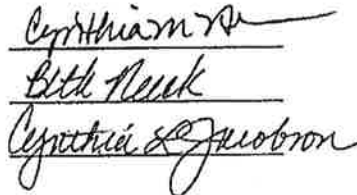 Cynthia M
Beth
Cynthia L Jacobson